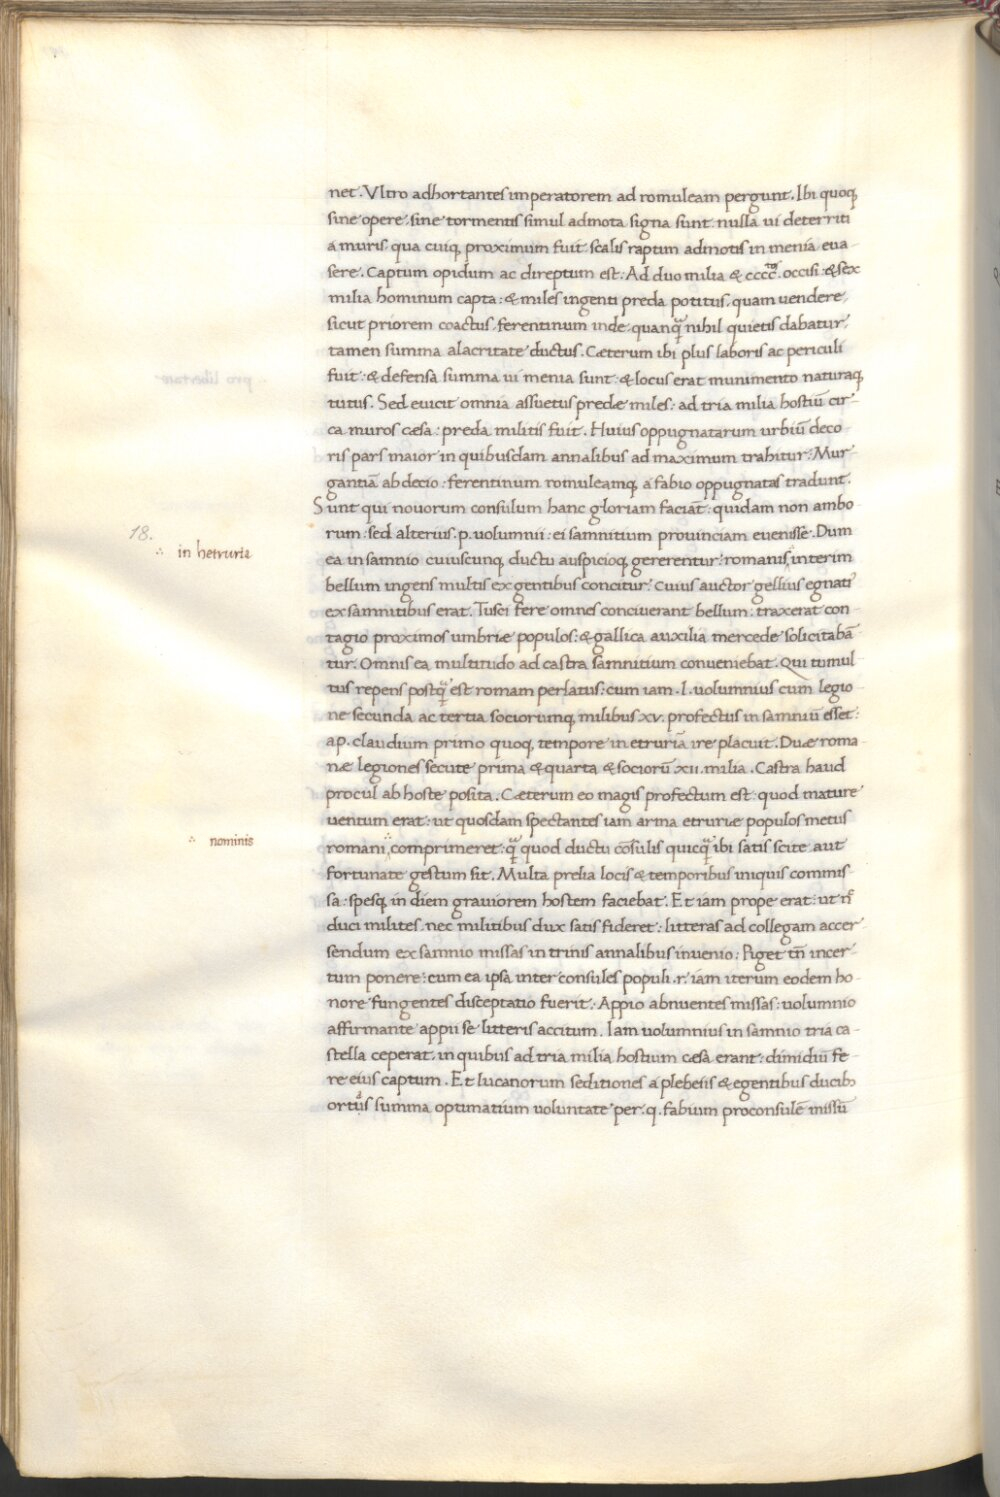 net. Vltro adhortantes imperatorem ad romuleam pergunt. Ibi quoq;
sine opere: sine tormentis simul admota signa sunt nulla ui deterriti
a muris. qua cuiq; proximum fuit scalis raptim admotis in menia eua-
sere. Captum opidum ac direptum est. Ad duo milia & cccc.tos occisi: & sex
milia hominum capta: & miles ingenti preda potitus, quam uendere,
sicut priorem coactus. ferentinum inde. quanq̃ nihil quietis dabatur,
tamen summa alacritate ductus. Cæterum ibi plus laboris ac periculi
fuit: & defensa summa ui menia sunt: & locus erat munimento naturaq;
tutus. Sed euicit omnia assuetus predæ miles: ad tria milia hostiū cir-
ca muros cæsa: preda militis fuit. Huius oppugnatarum urbiū deco
ris pars maior in quibusdam annalibus ad maximum trahitur: Mur-
gantiā ab decio: ferentinum romuleamq; a fabio oppugnatas tradunt.
Sunt qui nouorum consulum hanc gloriam faciāt: quidam non ambo
rum: sed alterius. p. uolumnii: ei samnitium prouinciam euenisse. Dum
18.
∴ in hetruria
ea in samnio cuiuscunq; ductu auspicioq; gererentur: romanis ∴ interim
bellum ingens multis ex gentibus concitur. Cuius auctor gellius egnati9
ex samnitibus erat. Tusci fere omnes conciuerant bellum: traxerat con-
tagio proximos umbriæ populos: & gallica auxilia mercede solicitabā
tur. Omnis ea multitudo ad castra samnitium conueniebat. Qui tumul-
tus repens postq̃ est romam perlatus: cum iam. l. uolumnius cum legio-
ne secunda ac tertia sociorumq; milibus xv. profectus in samniū esset:
ap. claudium primo quoq; tempore in etruriā ire placuit. Duæ roma-
næ legiones secute prima & quarta & sociorū xii. milia. Castra haud
procul ab hoste posita. Cæterum eo magis profectum est: quod mature
uentum erat: ut quosdam spectantes iam arma etruriæ populos metus
∴ nominis
romani ∴ comprimeret: q̃ quod ductu cōsulis quicq̃ ibi satis scite aut
fortunate gestum sit. Multa prelia locis & temporibus iniquis commis-
sa: spesq; in diem grauiorem hostem faciebat. Et iam prope erat: ut n̄
duci milites, nec militibus dux satis fideret: litteras ad collegam accer-
sendum ex samnio missas in trinis annalibus inuenio: Piget tn̄ incer-
tum ponere: cum ea ipsa inter consules populi. r. iam iterum eodem ho-
nore fungentes disceptatio fuerit: Appio abnuentes missas: uolumnio
affirmante appii se litteris accitum. Iam uolumnius in samnio tria ca-
stella ceperat. in quibus ad tria milia hostium cæsa erant: dimidiū fe-
re eius captum. Et lucanorum seditiones a plebeiis & egentibus ducib9
ortas summa optimatium uoluntate per. q. fabium proconsulē missū